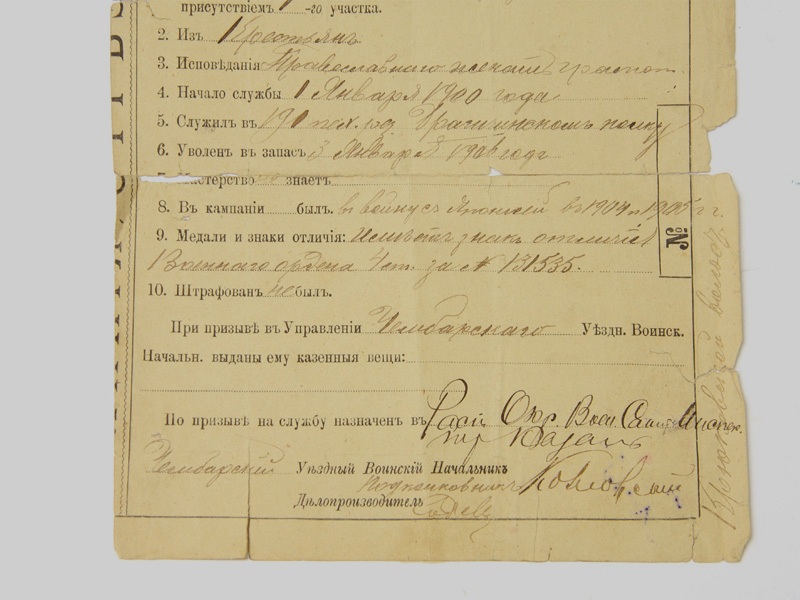 присутствіемъ -го участка.
2. Изъ Крестьянъ
3. Исповѣданія Православнаго
4. Начало службы 1 Января 1900 года
5. Служилъ въ 190 пѣх. полку
6. Уволенъ въ запасъ Января 1906 года
7. Мастерство знаетъ
8. Въ кампаніи былъ. въ войну съ Японіей въ 1904 и 1905 гг
9. Медали и знаки отличія: Имѣетъ знакъ отличія
Военнаго ордена 4 ст. за № 131535.
10. Штрафованъ не былъ.
№
При призывѣ въ Управленіи Чембарскаго Уѣздн. Воинск.
Начальн. выданы ему казенныя вещи:
По призыву на службу назначенъ въ Окр. Воен.
Чембарскій Уѣздный Воинскій Начальникъ
Подполковникъ
Дѣлопроизводитель